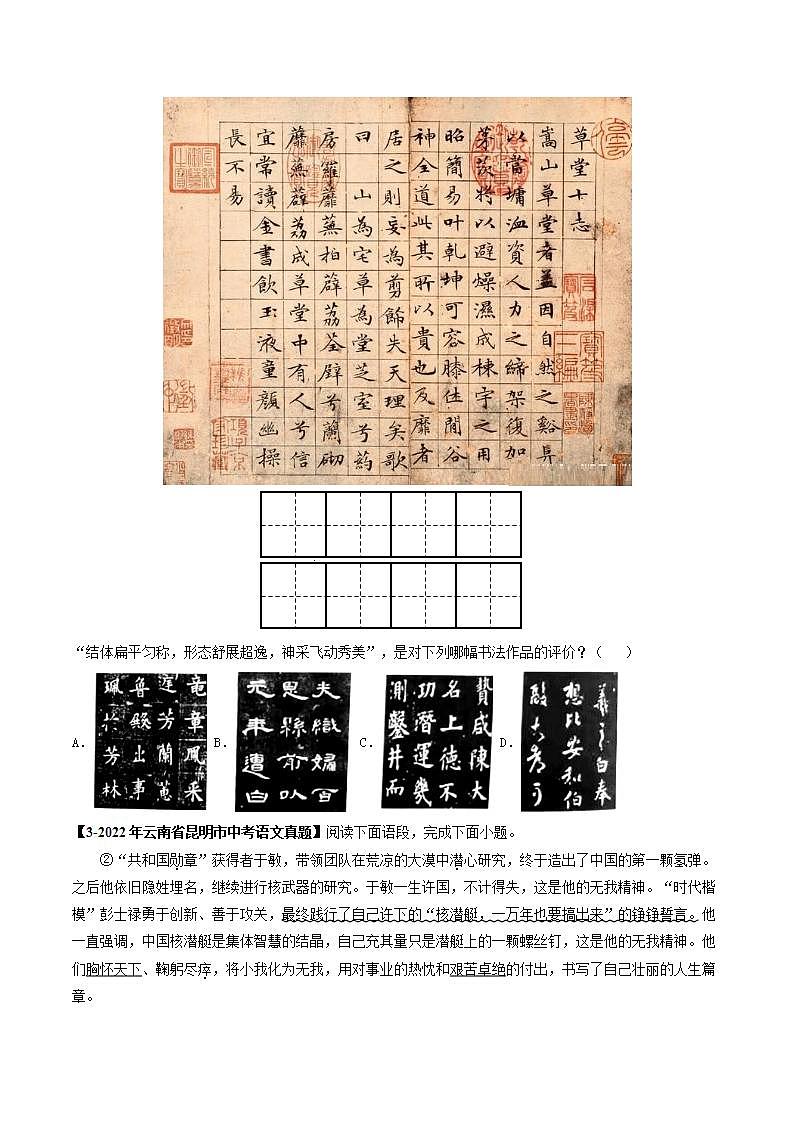 草堂十志
嵩山草堂者盖因自然之谿阜
以當墉洫資人力之締架復加
茅茨將以避燥濕成棟宇之用
昭簡易叶乾坤可容膝休閒谷
神全道此其所以貴也及靡者
居之則妄為剪飾失天理矣歌
曰 山為宅草為堂芝室兮葯
房羅蘼蕪拍薜荔荃壁兮蘭砌
蘼蕪薜荔成草堂中有人兮信
宜常讀金書飲玉液童顏幽操
長不易
“结体扁平匀称，形态舒展超逸，神采飞动秀美”，是对下列哪幅书法作品的评价？（　　）
A．
竜章鳳采
芳蘭蕙
出事
芳林
B．
夫織婦百
思縣前以
元年遭白
C．
贊咸陳大
名上德不
功曆運幾
測鑿井而
D．
羲之白奉
想比安和伯
【3-2022年云南省昆明市中考语文真题】阅读下面语段，完成下面小题。
②“共和国勋章”获得者于敏，带领团队在荒凉的大漠中潜心研究，终于造出了中国的第一颗氢弹。
之后他依旧隐姓埋名，继续进行核武器的研究。于敏一生许国，不计得失，这是他的无我精神。“时代楷
模”彭士禄勇于创新、善于攻关，最终践行了自己许下的“核潜艇，一万年也要搞出来”的铮铮誓言。他
一直强调，中国核潜艇是集体智慧的结晶，自己充其量只是潜艇上的一颗螺丝钉，这是他的无我精神。他
们胸怀天下、鞠躬尽瘁，将小我化为无我，用对事业的热忱和艰苦卓绝的付出，书写了自己壮丽的人生篇
章。